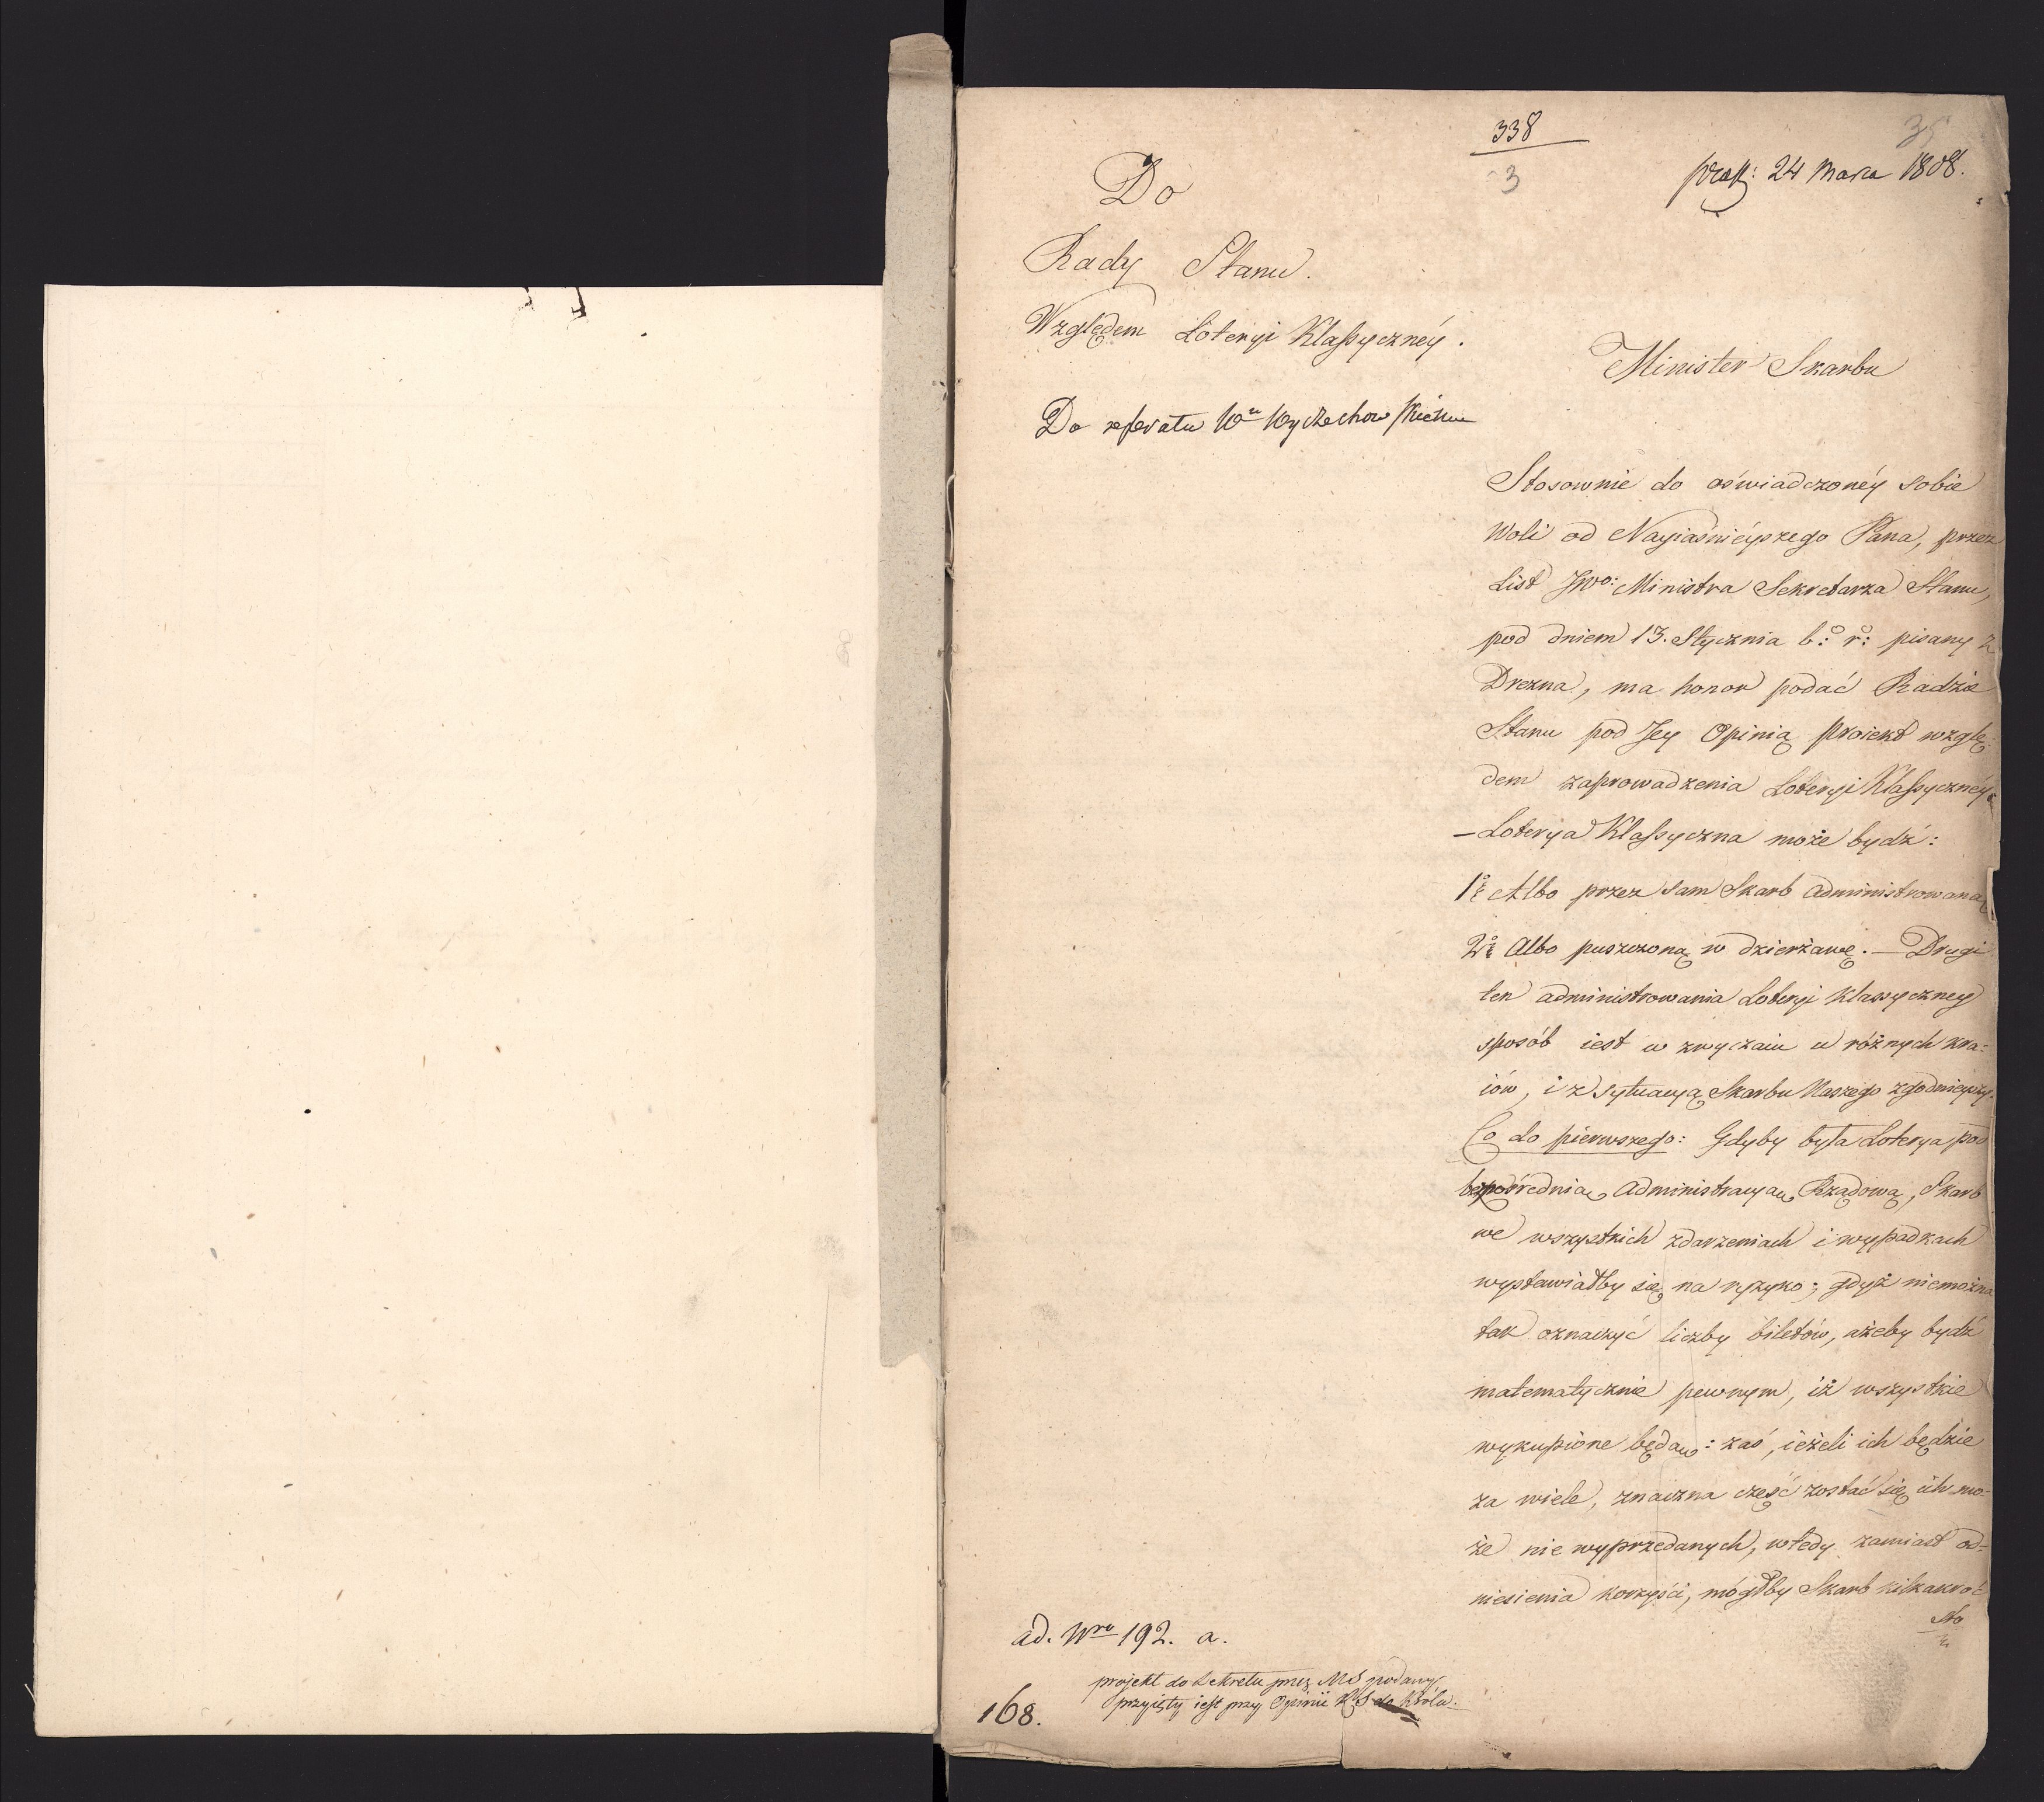 338
3
35
24 Marca 1808.
Do
Rady Stanu.
Względem Loteryi Klassycznéy.
Do referatu Wu Wyczechowskiemu
Minister Skarbu
Stosownie do oświadczonéy sobie
Woli od Nayiaśnieyszego Pana, przez
List JWo: Ministra Sekretarza Stanu,
pod dniem 13. Stycznia b: r: pisany z
Drezna, ma honor podać Radzie
Stanu pod Jey Opinią Proiekt wzglę-
dem zaprowadzenia Loteryi Klassycznéy.
– Loterya Klassyczna może bydź:
1o Albo przez sam Skarb administrowaną
2o Albo puszczoną w dzierżawę. – Drugi
ten administrowania Loteryi Klassyczney
sposób iest w zwyczaiu u różnych kra-
iów, i z sytuacyą Skarbu Naszego zgodnieyszy.
Co do pierwszego: Gdyby była Loterya pod
bezpośrednią administracyą Rządową, Skarb
we wszystkich zdarzeniach i wypadkach
wystawiałby się na ryzyko; gdyż niemożna
tak oznaczyć liczby biletów, ażeby bydź
matematycznie pewnym, iż wszystkie
wykupione będą: zaś, ieżeli ich będzie
za wiele, znaczna część zostać się ich mo-
że nie wyprzedanych, wtedy zamiast od-
niesienia korzyści, mógłby Skarb kilkakroć
sto
ad. Nro 192. a.
projekt do Dekretu przez MS podany
przyięty iest przy Opinii RS do Króla.
168.